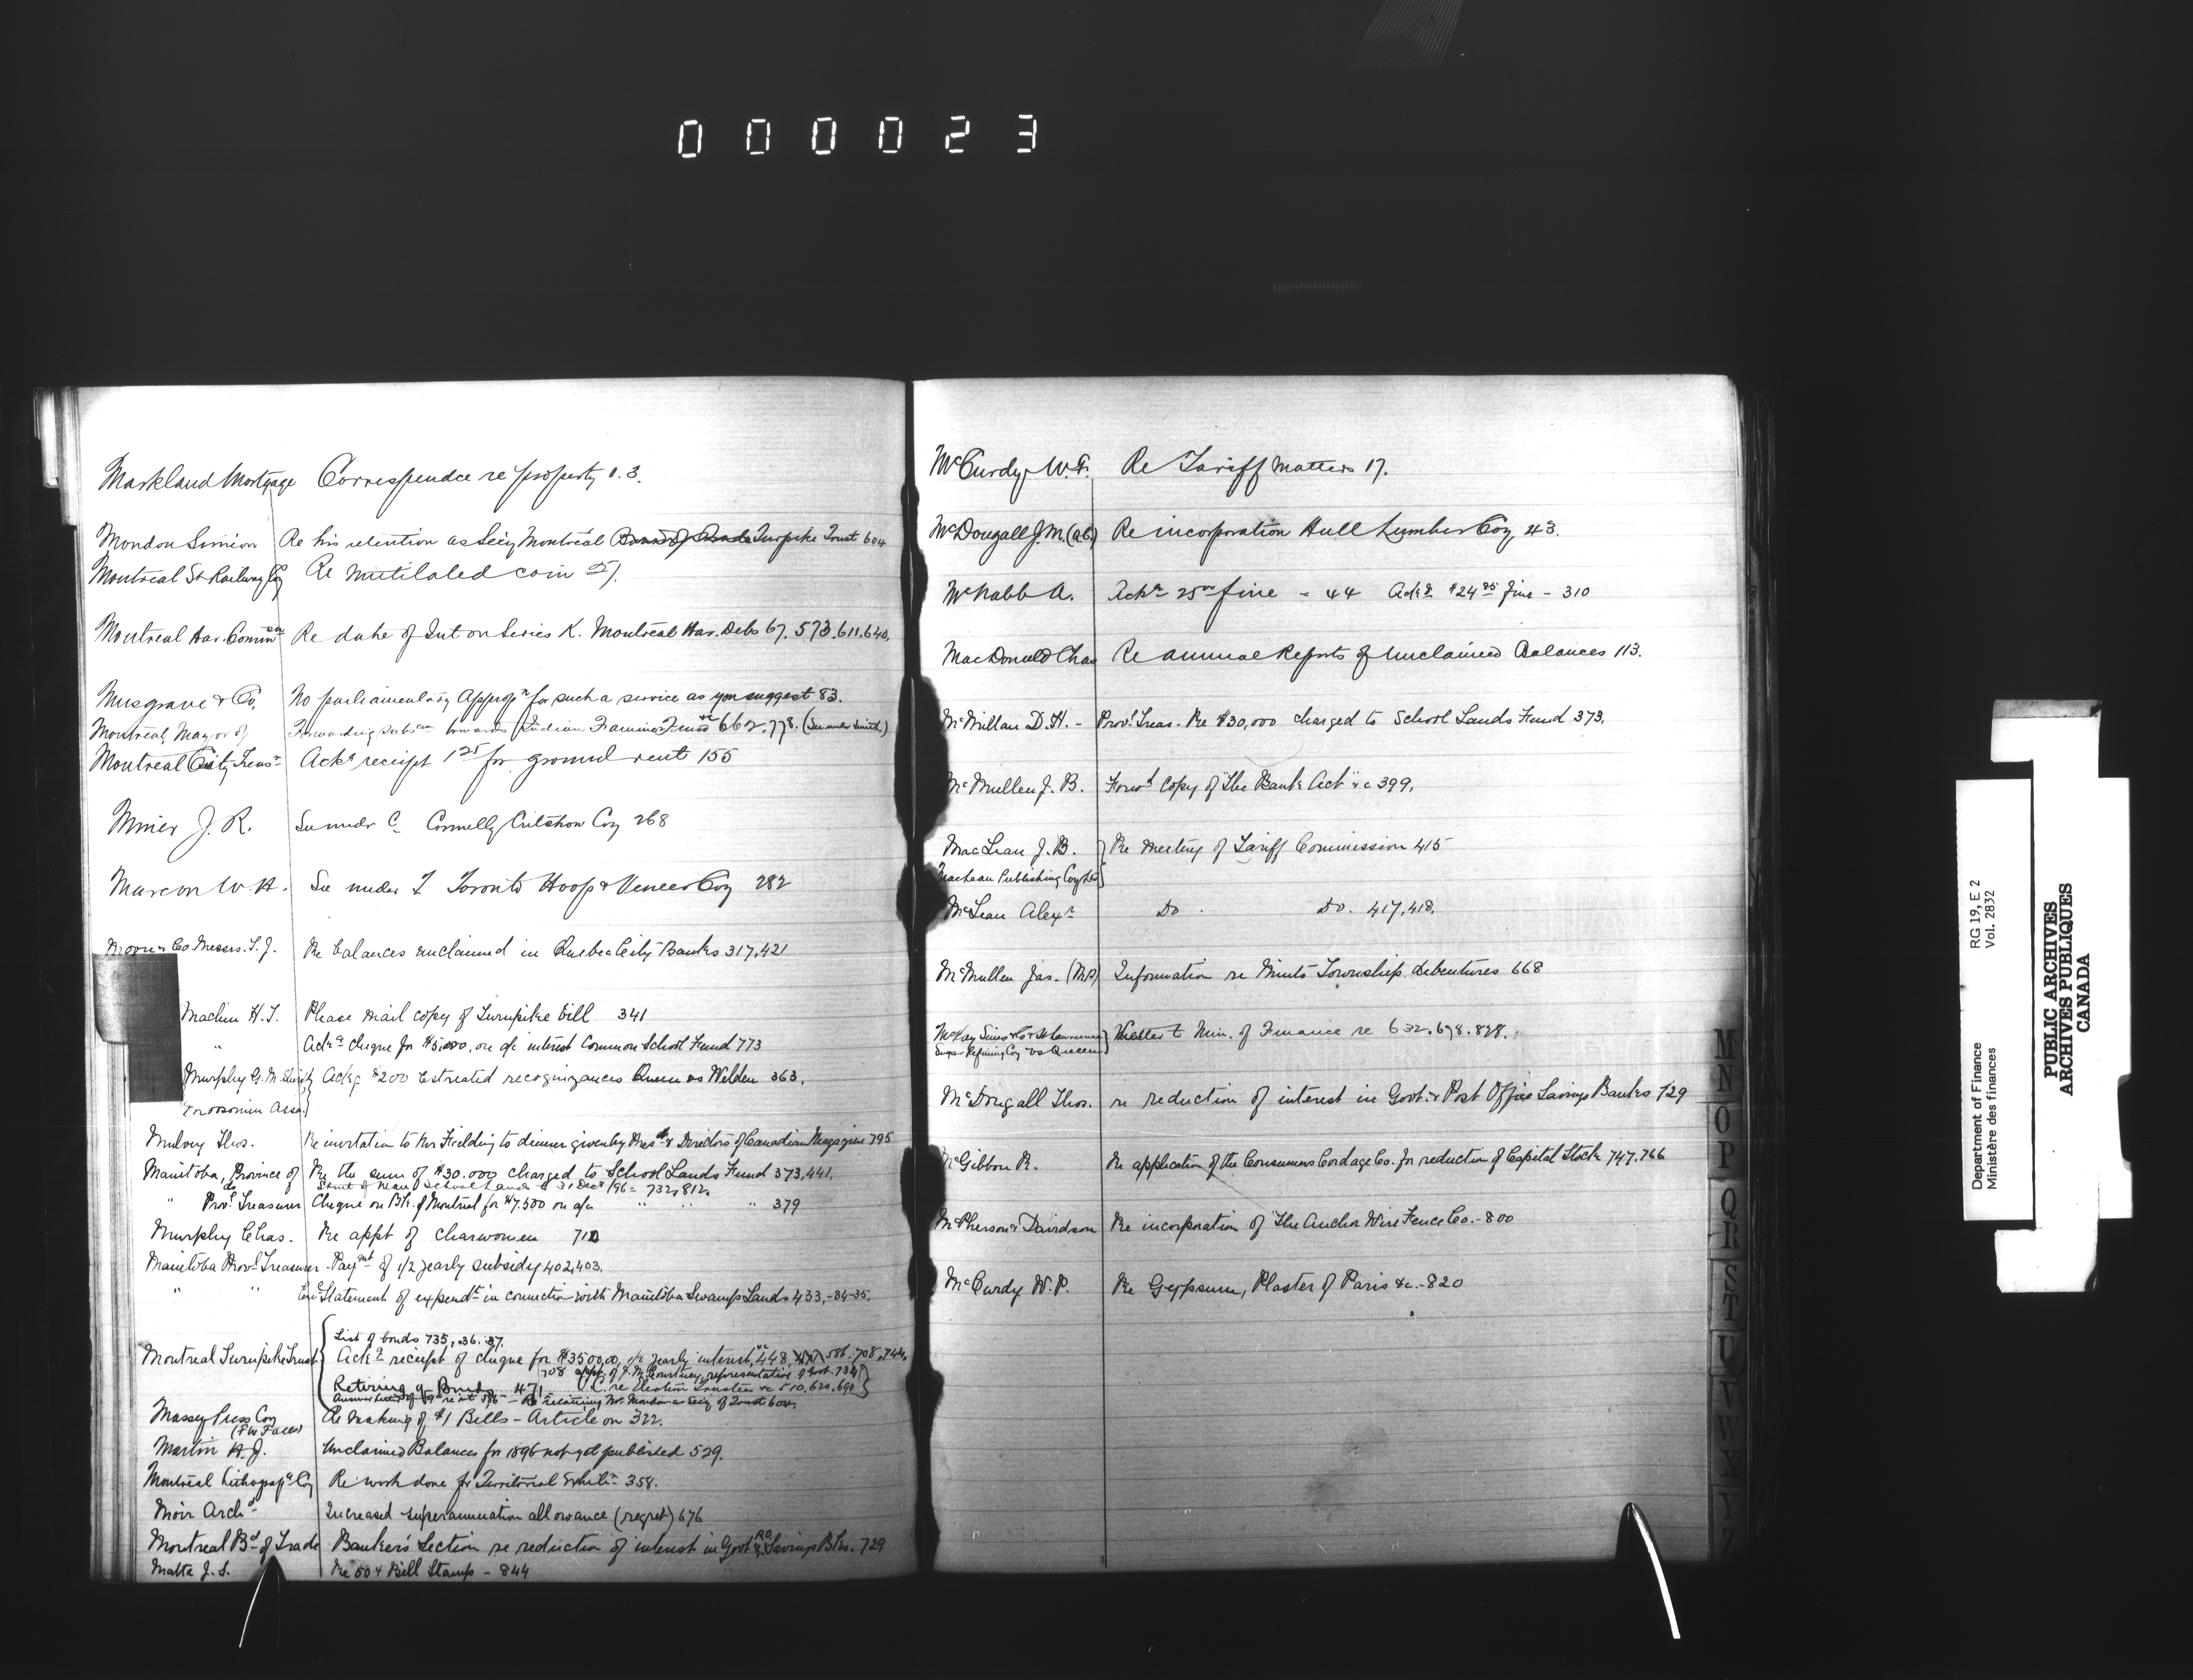 000023
Markland Mortgage Correspondce re property 1.3.
Mondon Simion Re his retention as Secy Montreal Board of Trade Turnpike Trust 604
Montreal St Railway Coy Re mutilated coin 51.
Montreal Har. Commrs Re date of Int on Series K. Montreal Har. Debs 67. 573. 611. 640.
Musgrave & Co. No parliamentary Appropn for such a service as you suggest 83.
Montreal, Mayor of Forwarding subscn towards Indian Famine Fund 662. 778. (Sumner Smith)
Montreal City Treasr Ackg receipt 1 25 for ground rent 155
Minier J. R. See under C Connelly Coy 268
Marcon W. A. See under T Toronto Hoop & Veneer Coy 282
Moore & Co Messrs. T. J. Re balances unclaimed in Quebec City Banks 317, 421
Machin H. T. Please mail copy of Turnpike bill 341
" Ackg cheque for $5,000, on a/c interest Common School Fund 773
Murphy G. M. Ackg $200 Estreated recognizances Queen vs Welden 363.
Mulvey Thos. Re invitation to Mr Fielding to dinner given by Prest & Directors of Canadian Magazine 795
Manitoba, Province of Re the sum of $30.000 charged to School Lands Fund 373, 441,
do School Lands to 31 Decr /96 = 732, 812.
" Provl Treasurer Cheque on Bk. of Montreal for $7.500 on a/c " " " 379
Murphy Chas. Re appt of charwomen 710
Manitoba Provl Treasurer - Paymt of 1/2 yearly subsidy 402, 403.
" " Statement of expendt in connection with Manitoba Swamp Lands 433,-34-35.
List of bonds 735, 36. 37.
Montreal Turnpike Trust Ackg receipt of cheque for $3500.00, 1/2 yearly interest, 448, 586, 708, 744,
708 appt of J. M. Courtney, representative of Govt. 734
Retiring of Bonds 471 O.C. re Election Trustees &c 510. 620. 690
Re retaining Mr. Mondon as Secy of Trust 604.
Massey Press Coy Re Making of $1 Bills - Article on 322.
Martin A. J. Unclaimed Balances for 1896 not yet published 529.
Montreal Lithograpg Coy Re work done for Territorial Exhibn 358.
Moir Archd Increased superannuation allowance (regret) 676
Montreal Bd of Trade Banker's Section re reduction of interest in Govt & P.O. Savings Bks. 729
Matte J. S. Re 50 + Bill Stamp - 844
McCurdy W. F. Re Tariff Matters 17.
McDougall J. M. Re incorporation Hull Lumber Coy, 43.
McNabb A. Ackg 25 00 fine - 44 Ackg $24 85 fine - 310
MacDonald Chas Re annual Reports of Unclaimed Balances 113.
McMillan D. H. - Provl Treas. Re $30,000 charged to School Lands Fund 373.
McMullen J. B. Forwd copy of "The Bank Act" &c 399.
MacLean J. B. Re meeting of Tariff Commission 415
MacLean Publishing Coy Ltd
McLean Alexr Do. Do. 417, 418,
McMullen Jas. (M.P.) Information re Minto Township debentures 668
McKay Simes & Co & St Lawrence Letter to Min. of Finance re 632. 678. 828.
Sugar Refining Coy vs Queen
McDougall Thos. re reduction of interest in Govt. & Post Office Savings Banks 729
McGibbon R. Re application of the Consumers Cordage Co. for reduction of Capital Stock 747. 766
McPherson & Davidson Re incorporation of "The Anchor Wire Fence Co. - 800
McCurdy W. P. Re Gypsum, Plaster of Paris &c. - 820
M
N
O
P
Q
R
S
T
U
V
W
X
Y
Z
Department of Finance
Ministère des finances
RG 19, E 2
Vol. 2832
PUBLIC ARCHIVES
ARCHIVES PUBLIQUES
CANADA